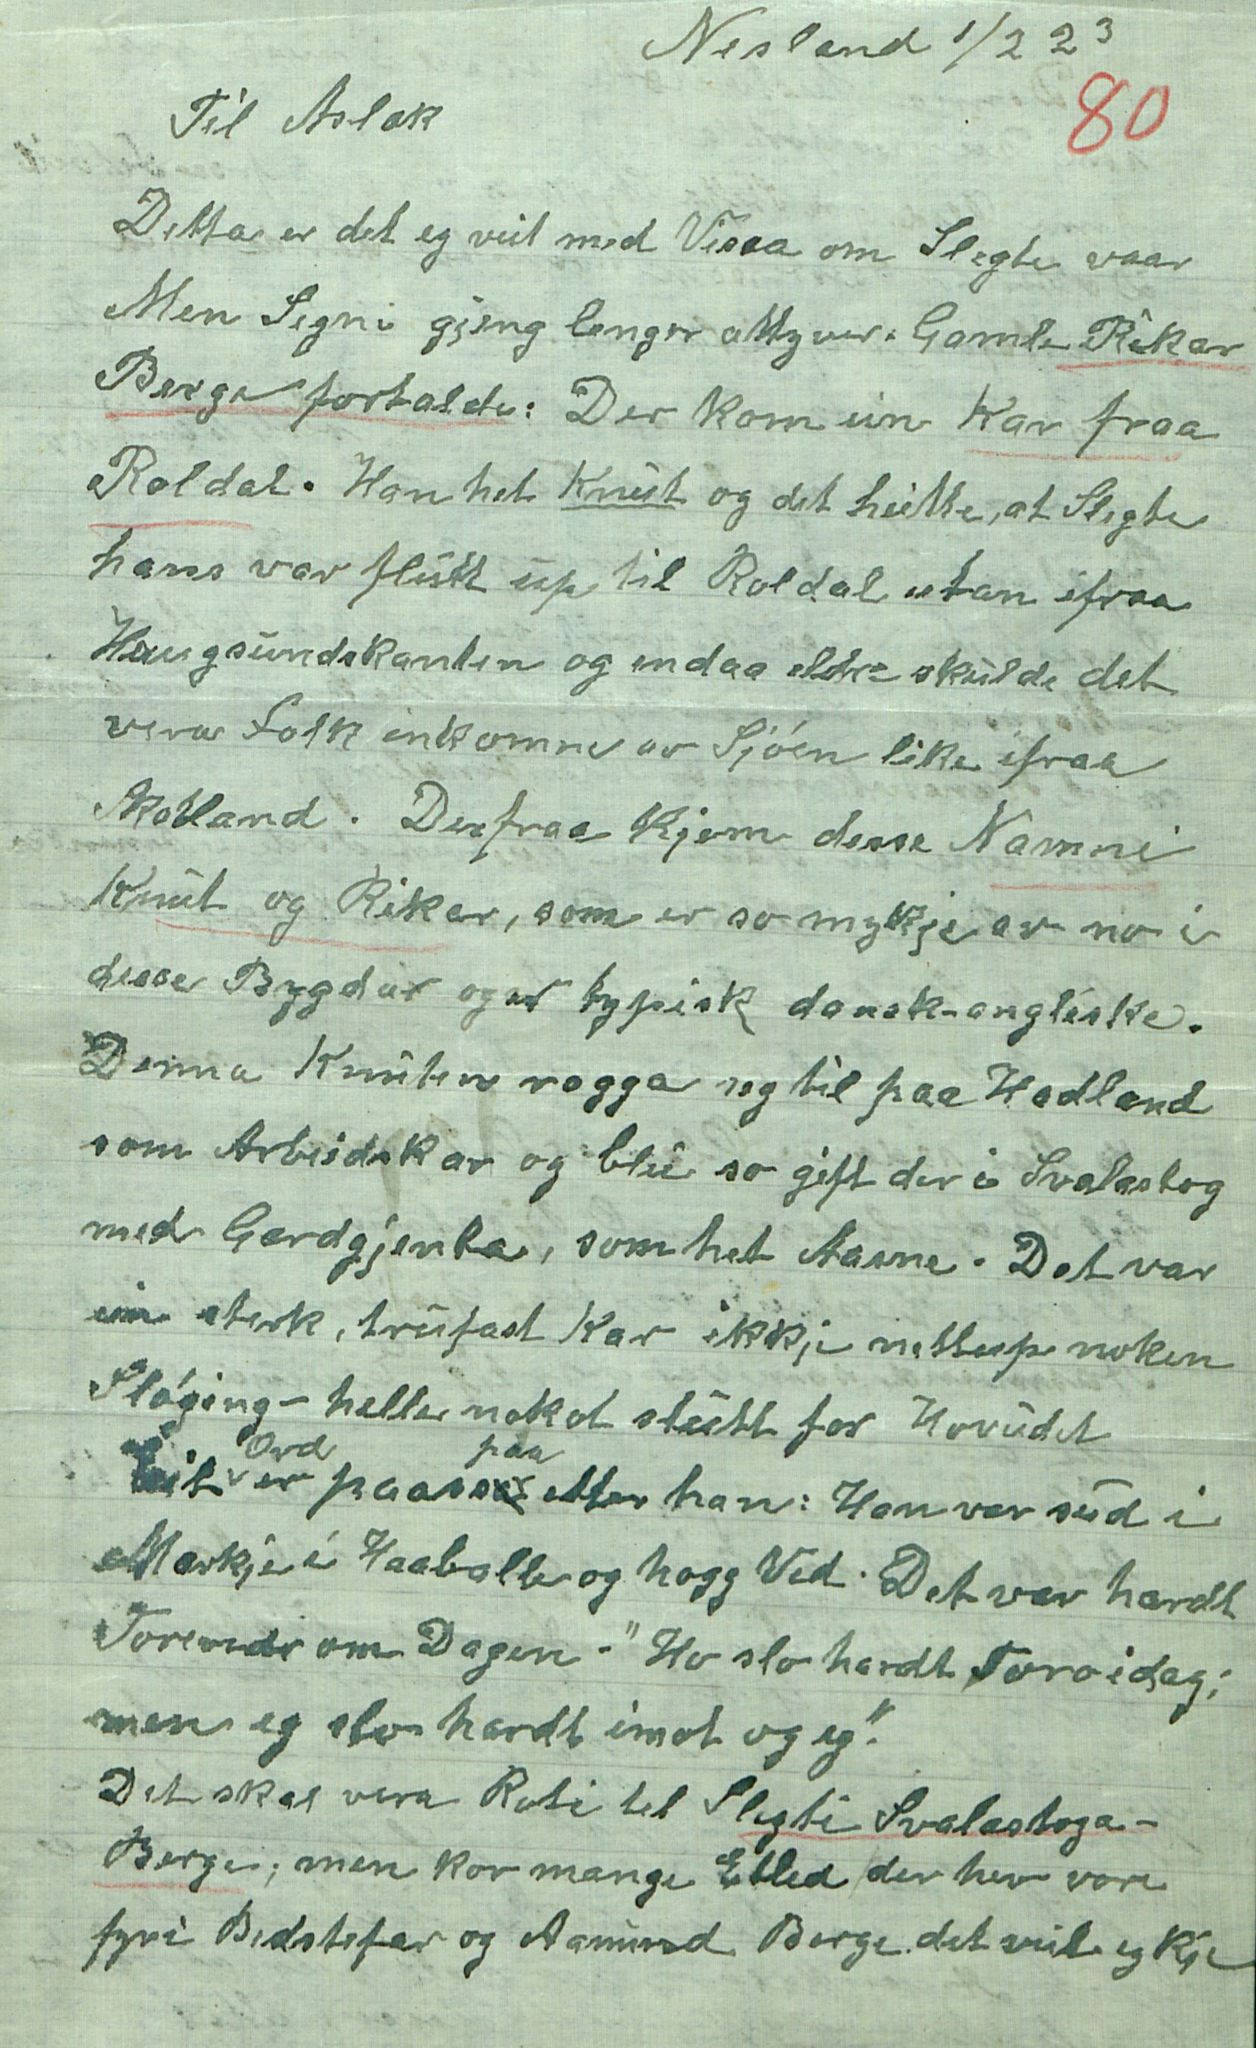 Nesland 1/2 23
80
Til Aslak
Detta er det eg veit med Vissa om Slegte vaar
Men Segni gjeng lenger attyver. Gamle Rikar
Berge fortalde: Der kom ein Kar fraa
Roldal. Han het Knut og det heitte, at Slegte
hans var flutt up til Roldal utan ifraa
Haugsundskanten og endaa eldre skulde det
vera Folk inkomne av Sjóen like ifraa
Skotland. Derfraa kjem desse Namni
Knut og Rikar, som er so mykje av no i
desse Bygdar og er typisk dansk-angliske.
Denna Knuten rogga seg til paa Hadland
som Arbeidskar og blei so gift der i Svalastog
med Gardgjenta, som het Aasne. Det var
ein sterk, trufast Kar ikkje nettup noken
Slóging - helle nokot slutt for Hovudet
Eit Ord er paa etter han: Han var sud i
Markje i Haaballe og hogg Ved. Det var hardt
Torever om Dagen. "Ho slo hardt Toro idag;
men eg slo hardt imot og eg".
Det skal vera Roti til Slegti Svalastoga-
Berge; men kor mange Etled der hev vore
fyri Bedstefar og Aamund Berge det veit eg kje